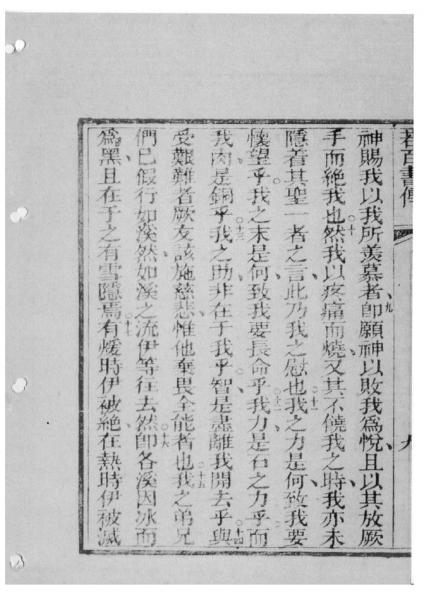 若百書傳
九
神賜我以我所羨慕者、九即願神以敗我為悅、且以其放厥
手而絕我也。十然我以疼痛而燒、又其不饒我之時、我亦未
隱着其聖一者之言、此乃我之慰也。十一我之力是何、致我要
懷望乎、我之末是何、致我要長命乎。十二我力是石之力乎、而
我肉是銅乎。十三我之助非在于我乎、智是盡離我開去乎。十四與
受艱難者、厥友該施慈悲、惟他棄畏全能者也。十五我之弟兄
們已假行如溪、然如溪之流、伊等往去。十六然即各溪因冰而
為黑、且在于之有雪隱焉。十七有煖時伊被絕、在熱時伊被滅